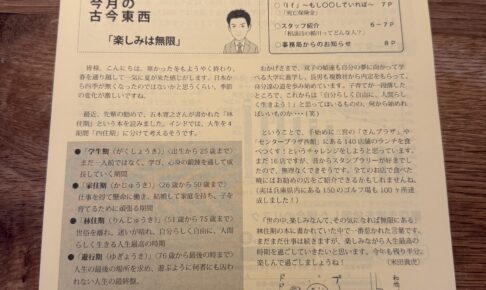 今月の
古今東西
「楽しみは無限」
「もし〇〇していれば〜」
「死亡保険金」
◇スタッフ紹介
6〜7P
「相談員の紹介ってどんな人？」
◇事務局からのお知らせ
8P
皆様、こんにちは。寒かった冬もようやく終わり、
春を通り越して一気に夏が来た感じがします。日本か
ら四季が無くなったのではないかと思うくらい、季節
の変化が激しいですね。
最近、先輩の勧めで、五木寛之さんが書かれた「林
住期」という本を読みました。インドでは、人生を4
期間「四住期」に分けて考えるそうです。
●「学生期（がくしょうき）（出生から25歳まで）
まだ一人前ではなく、学び、心身の鍛錬を通して成
長していく期間
●「家住期（かじゅうき）（26歳から50歳まで）
仕事を得て懸命に働き、結婚して家庭を持ち、子を
育てるために頑張る期間
●「林住期（りんじゅうき）（51歳から75歳まで）
世俗を離れ、迷いが晴れ、自分らしく自由に、人間
らしく生きる人生最高の時期
●「遊行期（ゆぎょうき）（76歳から最後の時まで）
人生の最後の場所を求め、遊ぶように何者にも囚わ
れない人生の最終盤。
おかげさまで、双子の娘達も自分の夢に向かって学
べる大学に進学し、長男も複数社から内定をもらって、
自分達の道を歩み始めています。子育てが一段落した
ところで、これからは「自分らしく自由に、人間らし
く生きよう！」と思ってはいるものの、何から始めれ
ばいいものか・・・（笑）
ということで、手始めに三宮の「さんプラザ」や
「センタープラザ西館」にある140店舗のランチを食
べつくす！というチャレンジをしようと思っています。
まだ16店ですが、昔からスタンプラリーが好きでし
たので、無理なくできそうです。全てのお店で食べた
暁にはお勧めの店をご紹介できるかもしれませんね。
（実は兵庫県内にある150のゴルフ場も100ヶ所達
成しました！）
「世の中、楽しみなんて、その気になれば無限にある」
林住期の本に書かれていた中で一番惹かれた言葉です。
まだまだ仕事は続きますが、楽しみながら人生最高の
時期を過ごしていきたいと思います。今年も残り半分。
楽しんで過ごしましょうね！
（米田義虎）